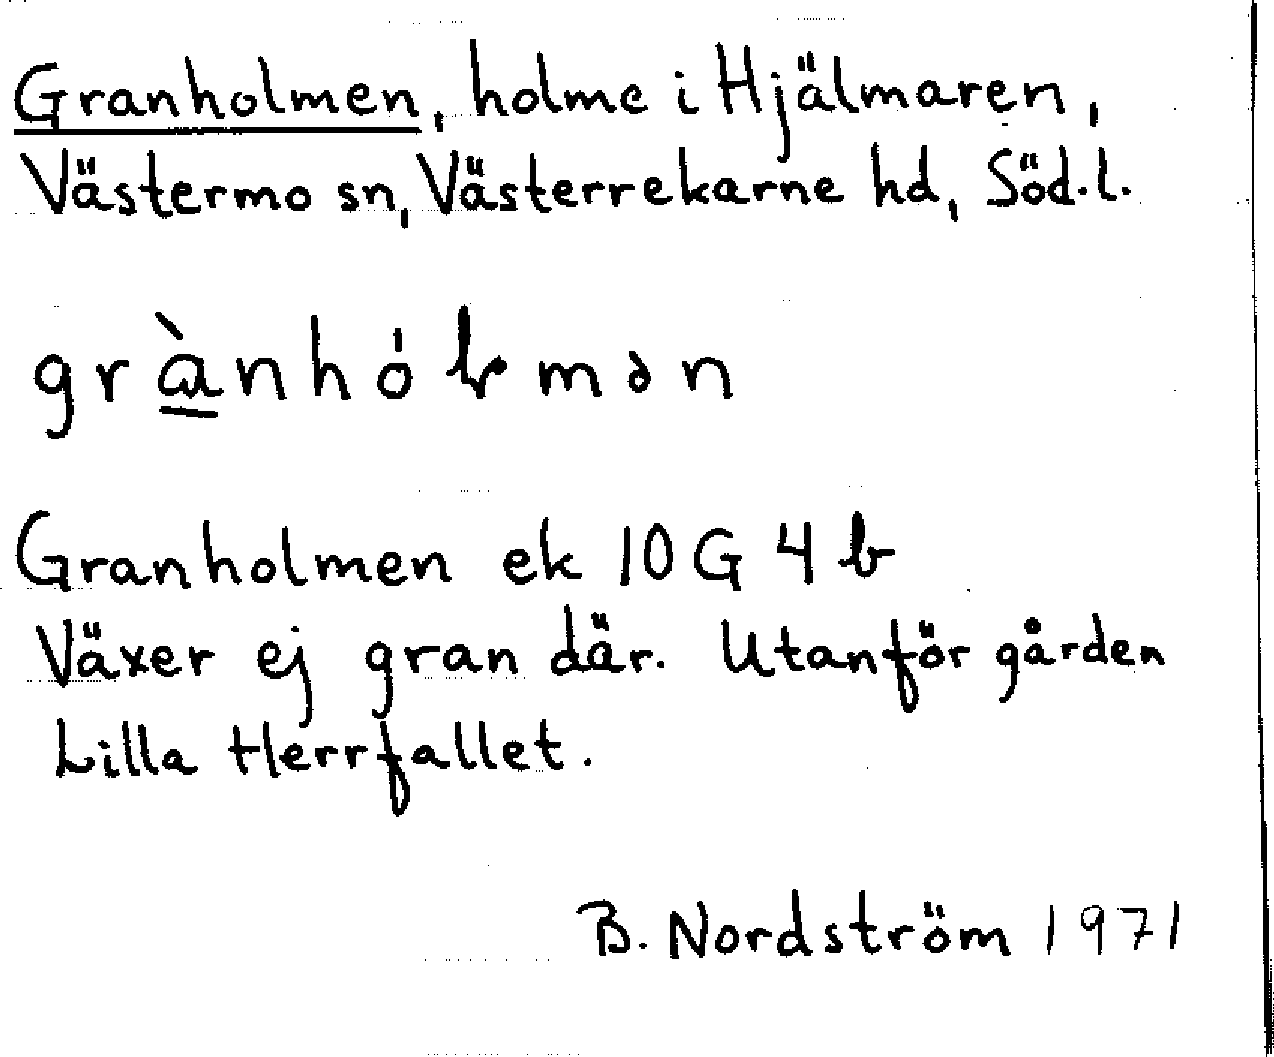 Granholmen, holme i Hjälmaren,
Västermo sn, Västerrekarne hd, Söd.l.
grànhólmən
Granholmen ek 10 G 4 b
Växer ej gran där. Utanför gården
Lilla Herrfallet.
B. Nordström 1971